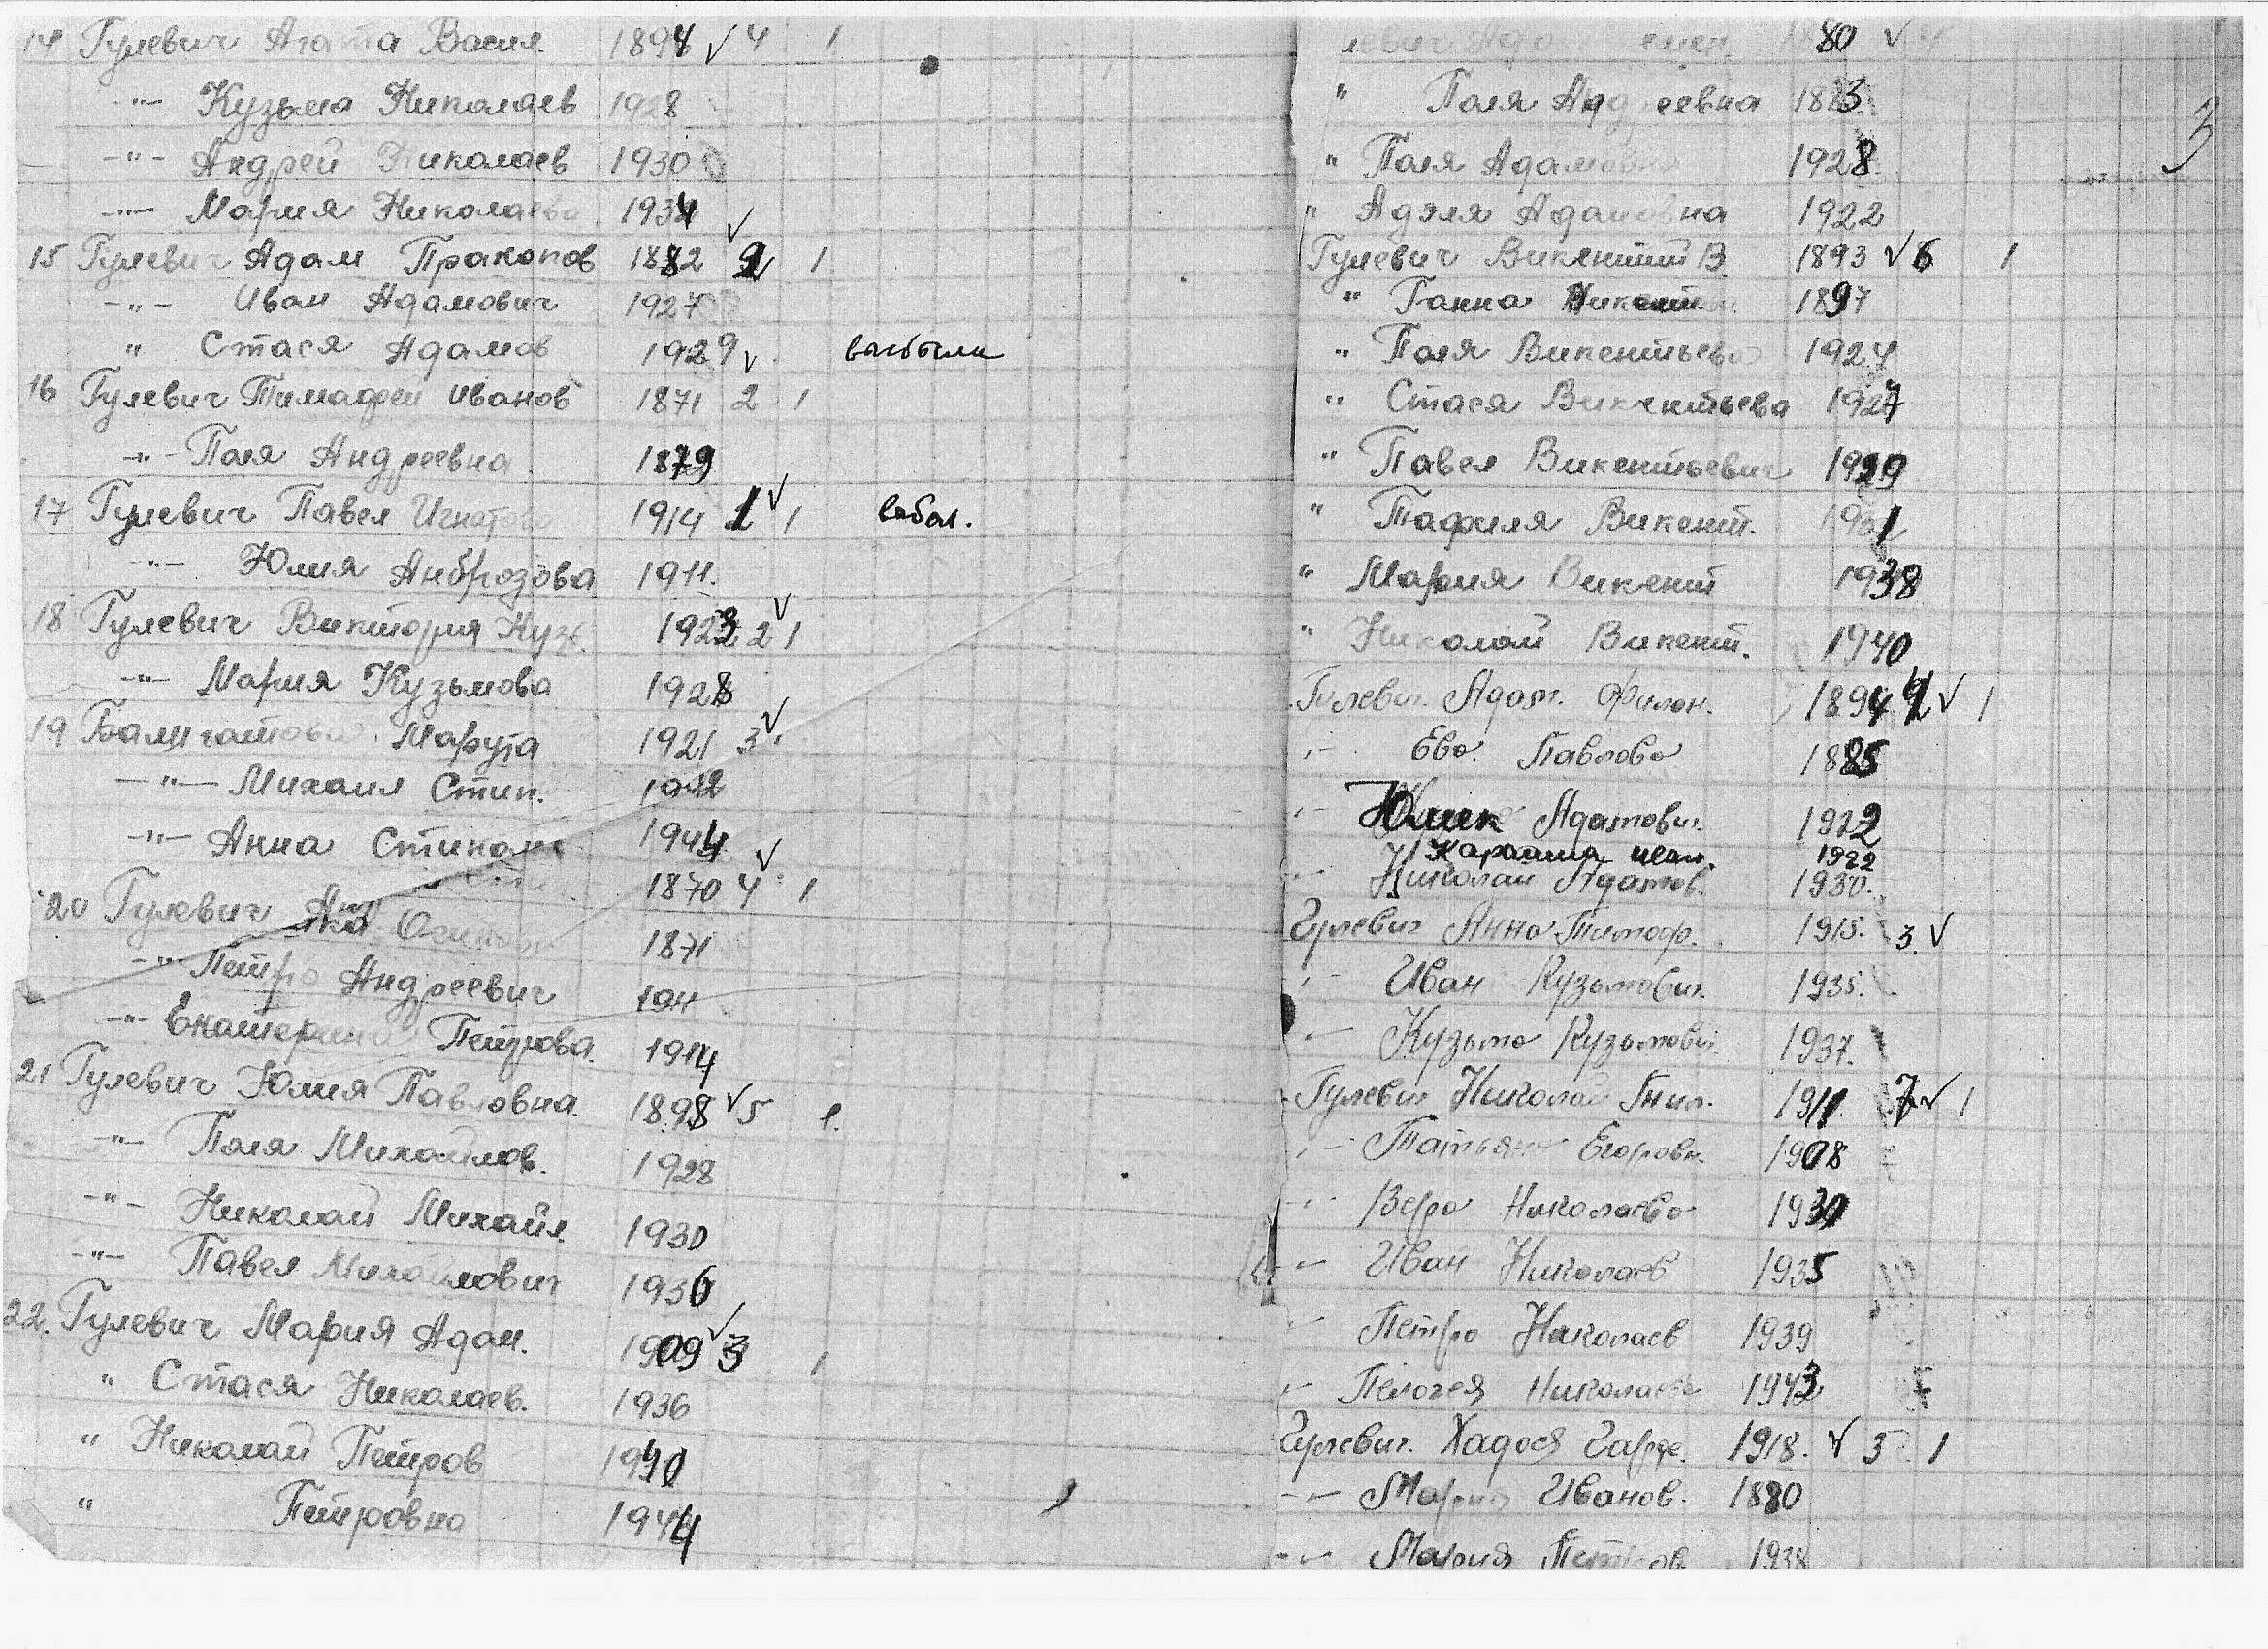 14 Гулевич Агата Васил. 1894 √ 4 1
-"- Кузьма Николаев 1928
-"- Андрей Николаев 1930
-"- Мария Николаева 1934
15 Гулевич Адам Пракопов 1882 √ 2 1
-"- Иван Адамович 1927
" Стася Адамов 1929 √
16 Гулевич Тимафей Иванов 1871 2 1
-"- Поля Андреевна 1879
17 Гулевич Павел Игнатов 1914 1 √ 1 выбыл.
-"- Юлия Анброзова 1911.
18 Гулевич Виктория Куз. 1923 2 √ 1
-"- Мария Кузьмова 1928
19 Маруга 1921 3 √
-"- Михаил Стип. 1942
-"- Анна 1944
20 Гулевич 1870 4 √ 1
1871
-"- Петро Андреевич 1911
-"- Екатерина Петрова. 1914
21 Гулевич Юлия Павловна. 1898 √ 5 1.
-"- Поля Михайлов. 1928
-"- Николай Михайл. 1930
-"- Павел Михайлович 1936
22. Гулевич Мария Адам. 1909 √ 3 1
" Стася Николаев. 1936
" Николай Петров 1940
" Петровна 1944
3
80 √ 4
" Поля Андреевна 1883
" Поля Адамовна 1928
" Адэля Адамовна 1922
Гулевич Викентий В. 1893 √ 6 1
" Ганна 1897
" Поля Викентьева 1924
" Стася Викентьева 1927
" Павел Викентьевич 1929
" Тафиля Викент. 1931
" Мария Викент 1938
" Николай Викент. 1940
Гулевич. Адам. Филон. 1894 4 √ 1
-"- Ева. Павлова 1885
-"- Юлик Адамович. 1922
1922
-"- Николай Адамов. 1930.
Гулевич Анна Тимоф. 1915. 3 √
-"- Иван Кузьмович. 1935.
-"- Кузьма Кузьмович. 1937.
Гулевич Николай 1911. 7 √ 1
-"- Татьяна Егоровн. 1908
-"- Вера Николаева 1930
-"- Иван Николаев 1935
-"- Петро Николаев 1939
-"- Николаева 1943
Гулевич. Хадося 1918. √ 3 1
-"- Мария Иванов. 1880
-"- Мария Петров. 1938